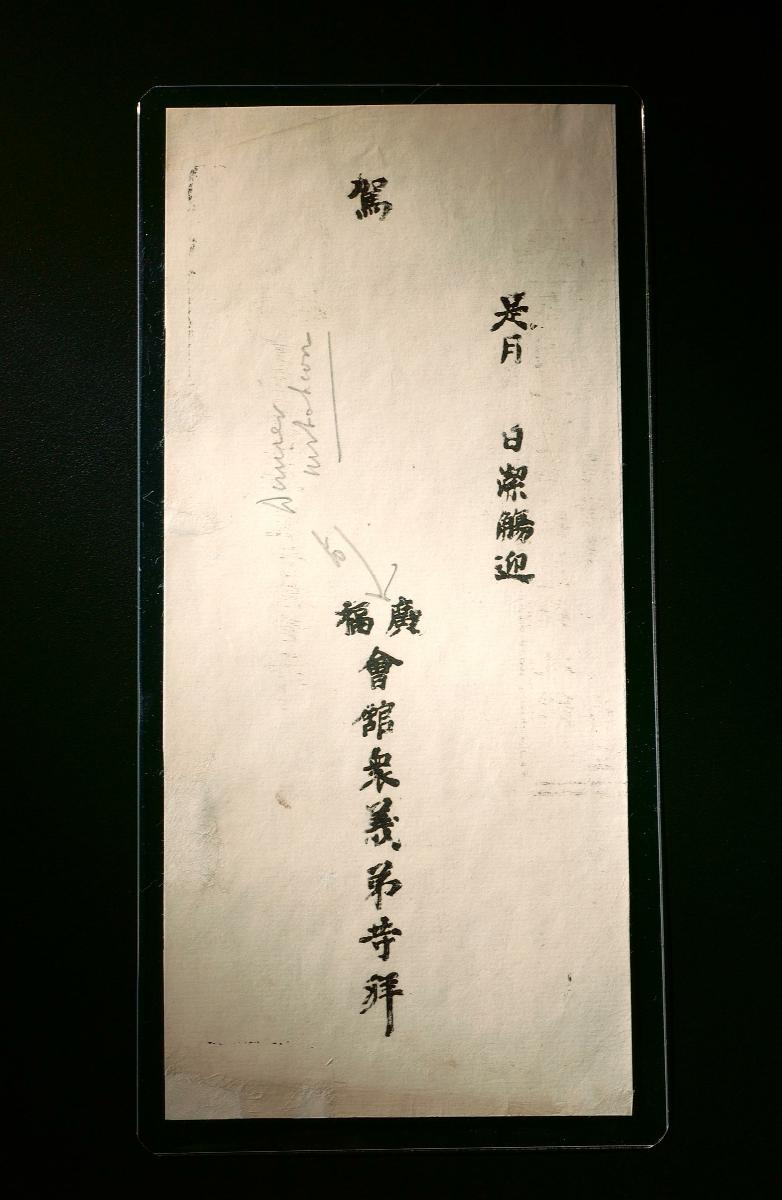 是月 日潔觴迎
駕
廣福會館衆義弟等拜
Dinner
invitation